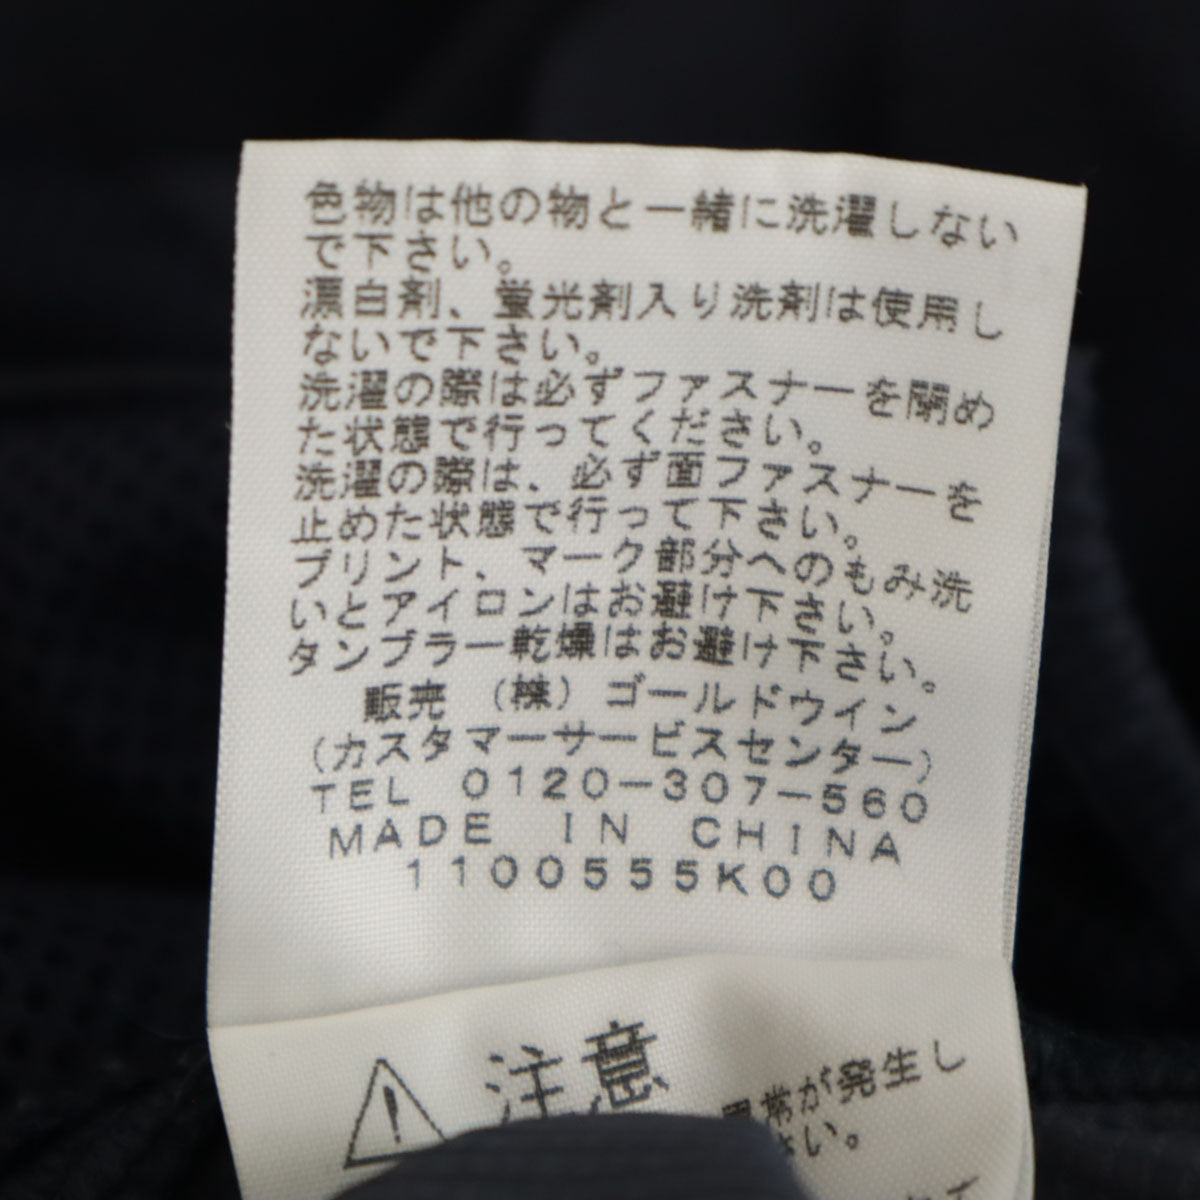 色物は他の物と一緒に洗濯しない
で下さい。
漂白剤、蛍光剤入り洗剤は使用し
ないで下さい。
洗濯の際は必ずファスナーを閉め
た状態で行ってください。
洗濯の際は、必ず面ファスナーを
止めた状態で行って下さい。
プリント、マーク部分へのもみ洗
いとアイロンはお避け下さい。
タンブラー乾燥はお避け下さい。
販売 (株) ゴールドウイン
(カスタマーサービスセンター)
TEL 0120-307-560
MADE IN CHINA
1100555K00
注意
異常が発生し
さい。